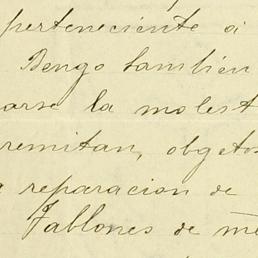 perteneciente á
Bengo tambien
arse la molest
remitan, obgetos
a reparacion de
Tablones de me